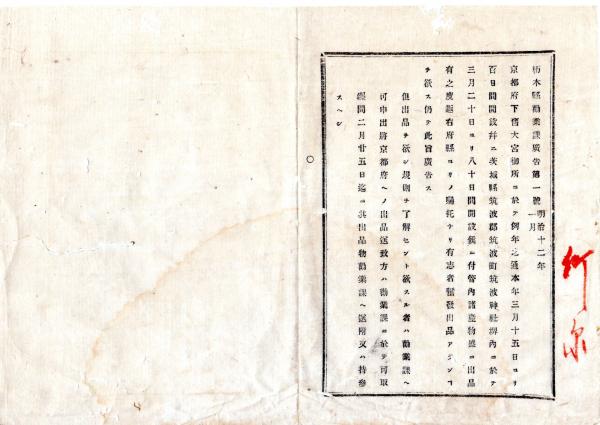 栃木縣勸業課廣告第一號 明治十二年一月
京都府下舊大宮御所ニ於テ例年之通本年三月十五日ヨリ
百日間開設幷ニ茨城縣筑波郡筑波町筑波神社境內ニ於テ
三月二十日ヨリ八十日間開設候ニ付管內諸產物出品
有之度趣右府縣ヨリノ囑托ナリ有志者奮發出品アランヿ
ヲ欲ス仍テ此旨廣告ス
但出品ヲ欲シ規則ヲ了解セント欲スル者ハ勸業課ヘ
可申出將京都府ヘノ出品送致方ハ勸業課ニ於テ可取
二月廿五日迄ニ其出品物勸業課ヘ送附又ハ持參
スヘシ